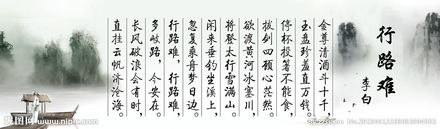 行路难
李白
金尊清酒斗十千，
玉盘珍羞直万钱。
停杯投箸不能食，
拔剑四顾心茫然。
欲渡黄河冰塞川，
将登太行雪满山。
闲来垂钓坐溪上，
忽复乘舟梦日边。
行路难，行路难，
多岐路，今安在。
长风破浪会有时，
直挂云帆济沧海。
www.nipic.com